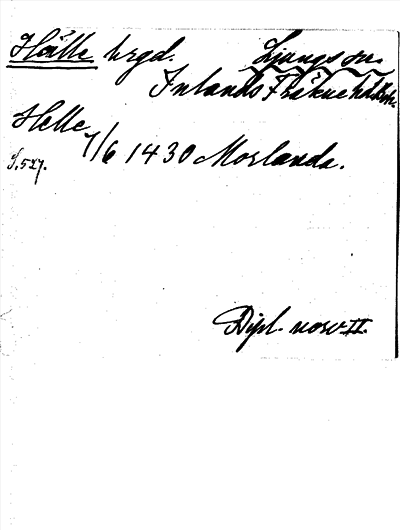 Hälle hrgd. Ljungs sn.
Inlands Fräkne hd Boh.
Helle 1/6 1430 Morlanda.
S. 527.
Dipl. norv. II.